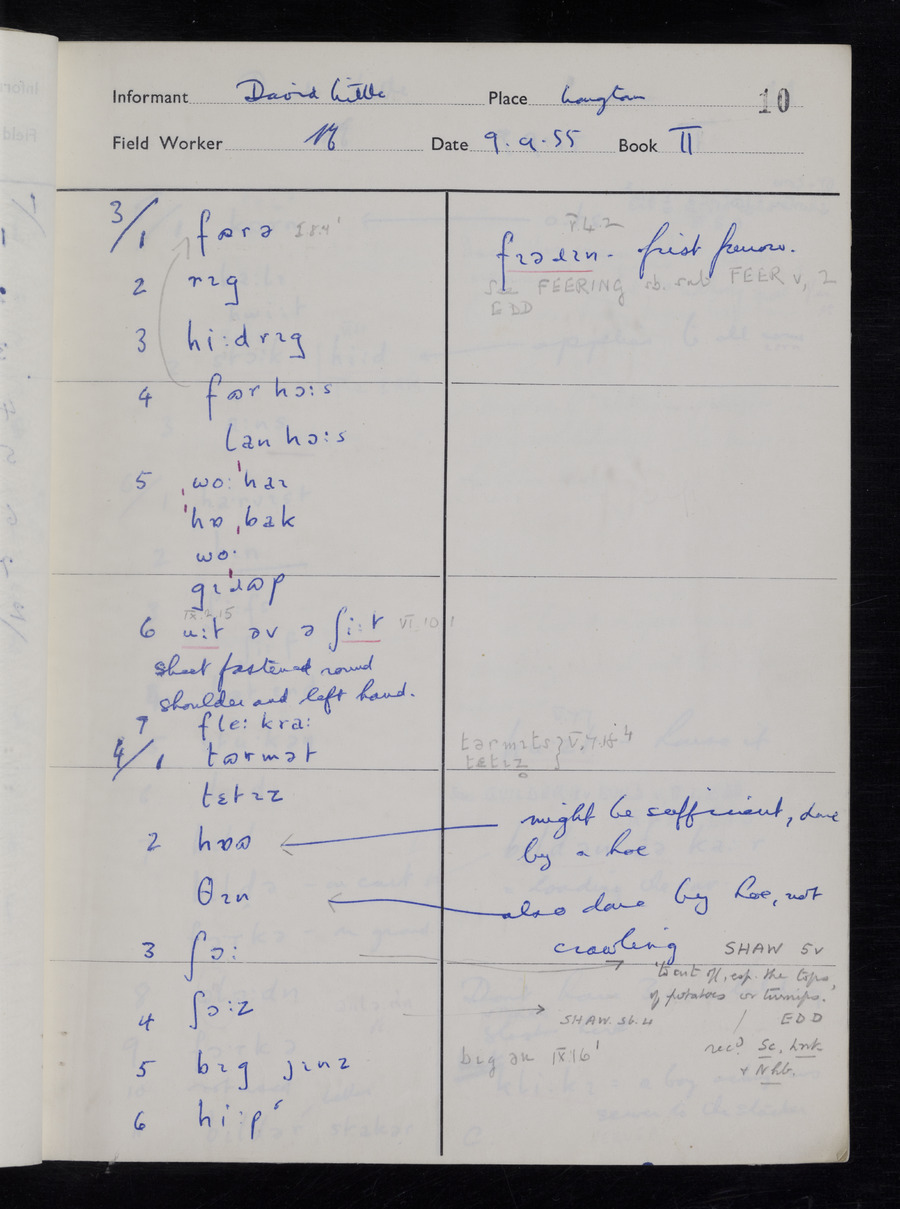 Informant David Little Place Longtown 10
Field Worker Date 9.9.55 Book II
3/1 fɷrə
V.4.2
frədɪn - first furrow.
see FEERING sb. sub FEER v, 2
EDD
2 rɪg
3 hi:drɪg
4 fɷr hɔ:s
lan hɔ:s
5 ˌwo:ˈhaɪ
ˈhɒ ˌbak
wo·
6 u:t əv ə ʃi:t VI.10.1
IX.2.15
sheet fastened round
shoulder and left hand.
7 fle: kra:
4/1 tɷrmət
tərmɪts } V.7.18
tɛtɪz
tɛtɪz
2 might be sufficient, done
by a hoe
θɪn also done by hoe, not
crawling
3 ʃɔ: SHAW 5v
to cut off, esp. the tops
of potatoes or turnips.
EDD
4 ʃɔ:z SHAW. sb. 4
rec? Sc. Lnk
+ Nhb.
5 bɪg ɟɪnz
bɪg ən IX16'
6 hi:p